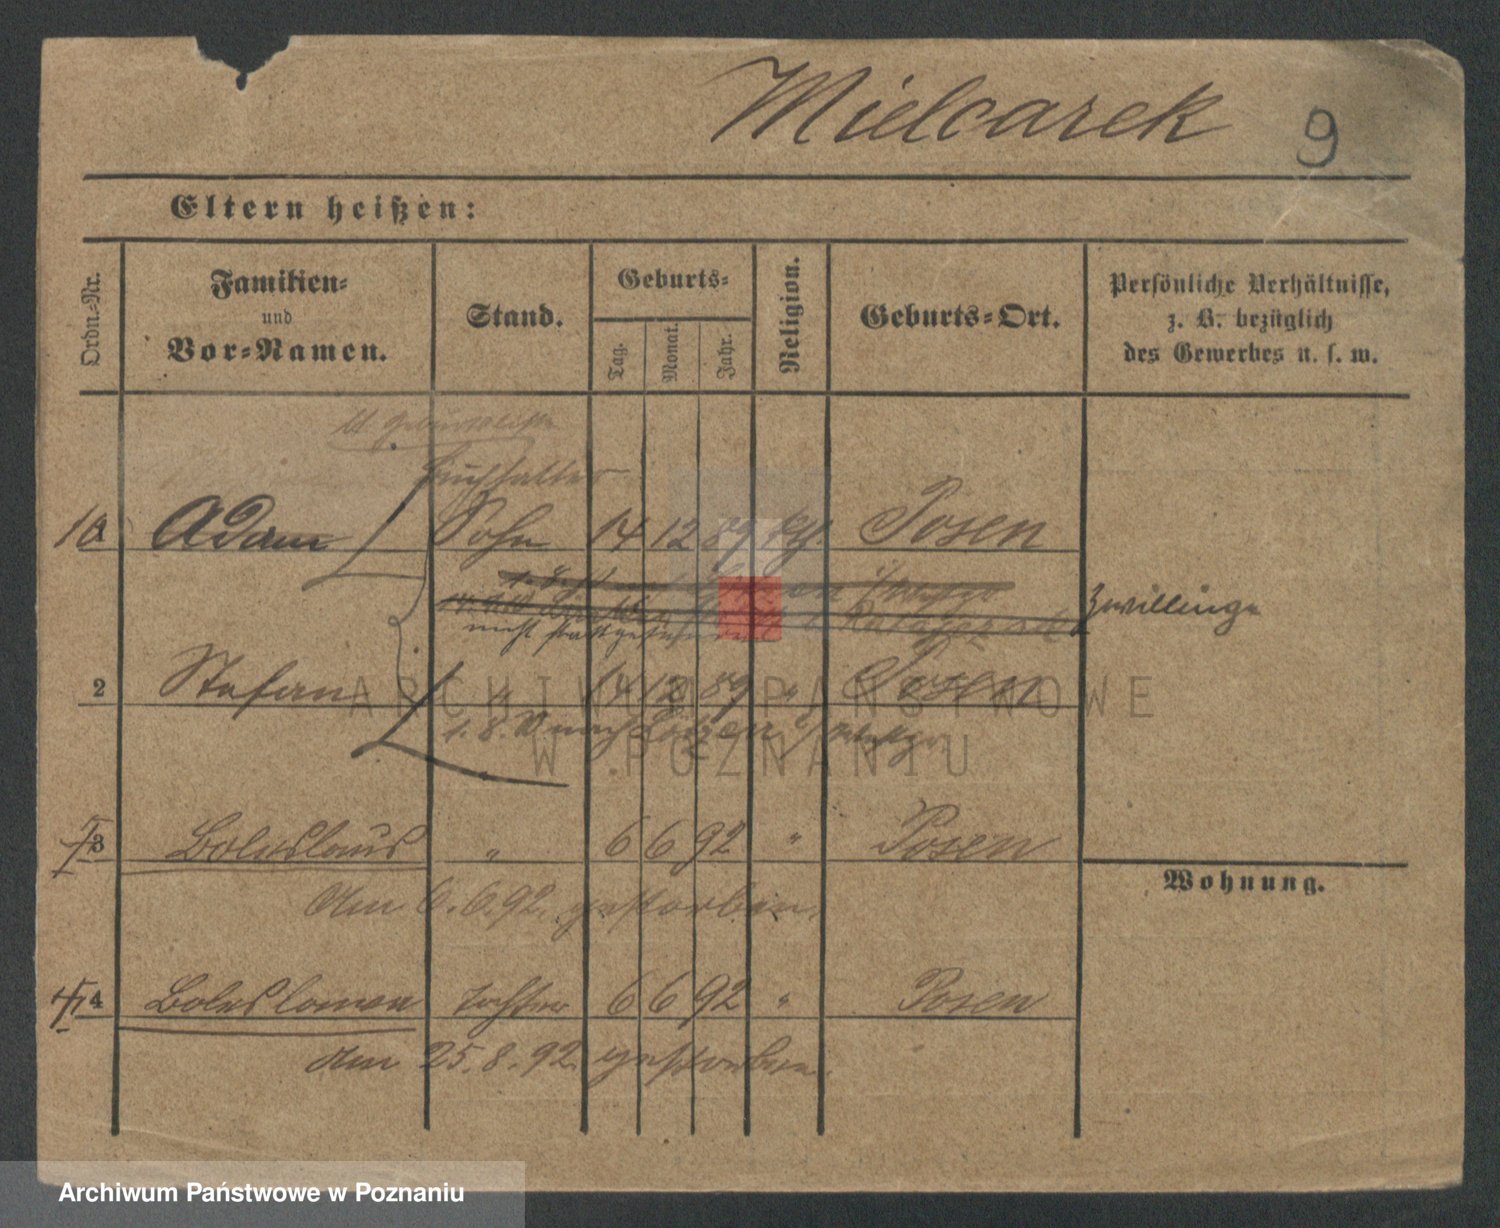 Mielcarek 9
Eltern heißen:
Ordn.-Nr.
Familien-
und
Vor-Namen.
Stand.
Geburts-
Tag.
Monat.
Jahr.
Religion.
Geburts-Ort.
Persönliche Verhältnisse,
z. B. bezüglich
des Gewerbes u. s. w.
Buchhalter
1a Adam Sohn 14 12 89 Posen
Zwillinge
nicht stattgefunden
2 Stefan " 14 12 89 " Posen
1. 8. nach
ARCHIWUM PAŃSTWOWE
W POZNANIU
3 Boleslaus " 6 6 92 " Posen
Am 6. 6. 92. gestorben.
Wohnung.
4 Boleslawa Tochter 6 6 92 " Posen
Am 25. 8. 92. gestorben.
Archiwum Państwowe w Poznaniu